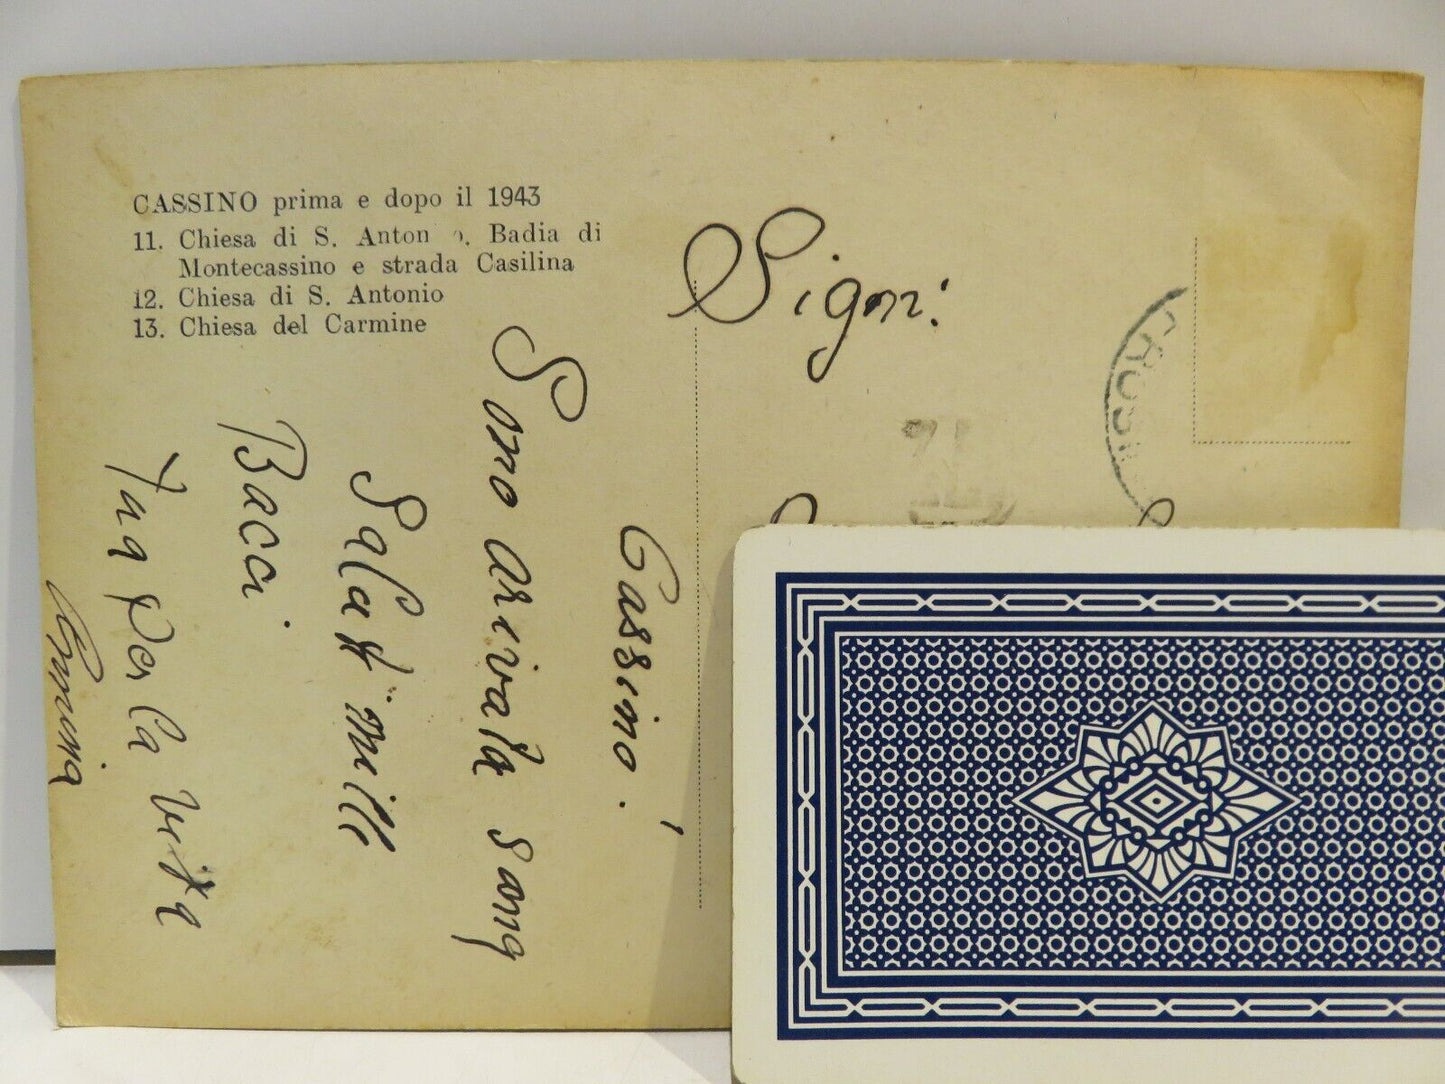 CASSINO prima e dopo il 1943
11. Chiesa di S. Anton o. Badia di
Montecassino e strada Casilina
12. Chiesa di S. Antonio
13. Chiesa del Carmine
Sign:
Cassino.
Sono arivata sana
Salut mille
Baci
per la vita
FROSIN